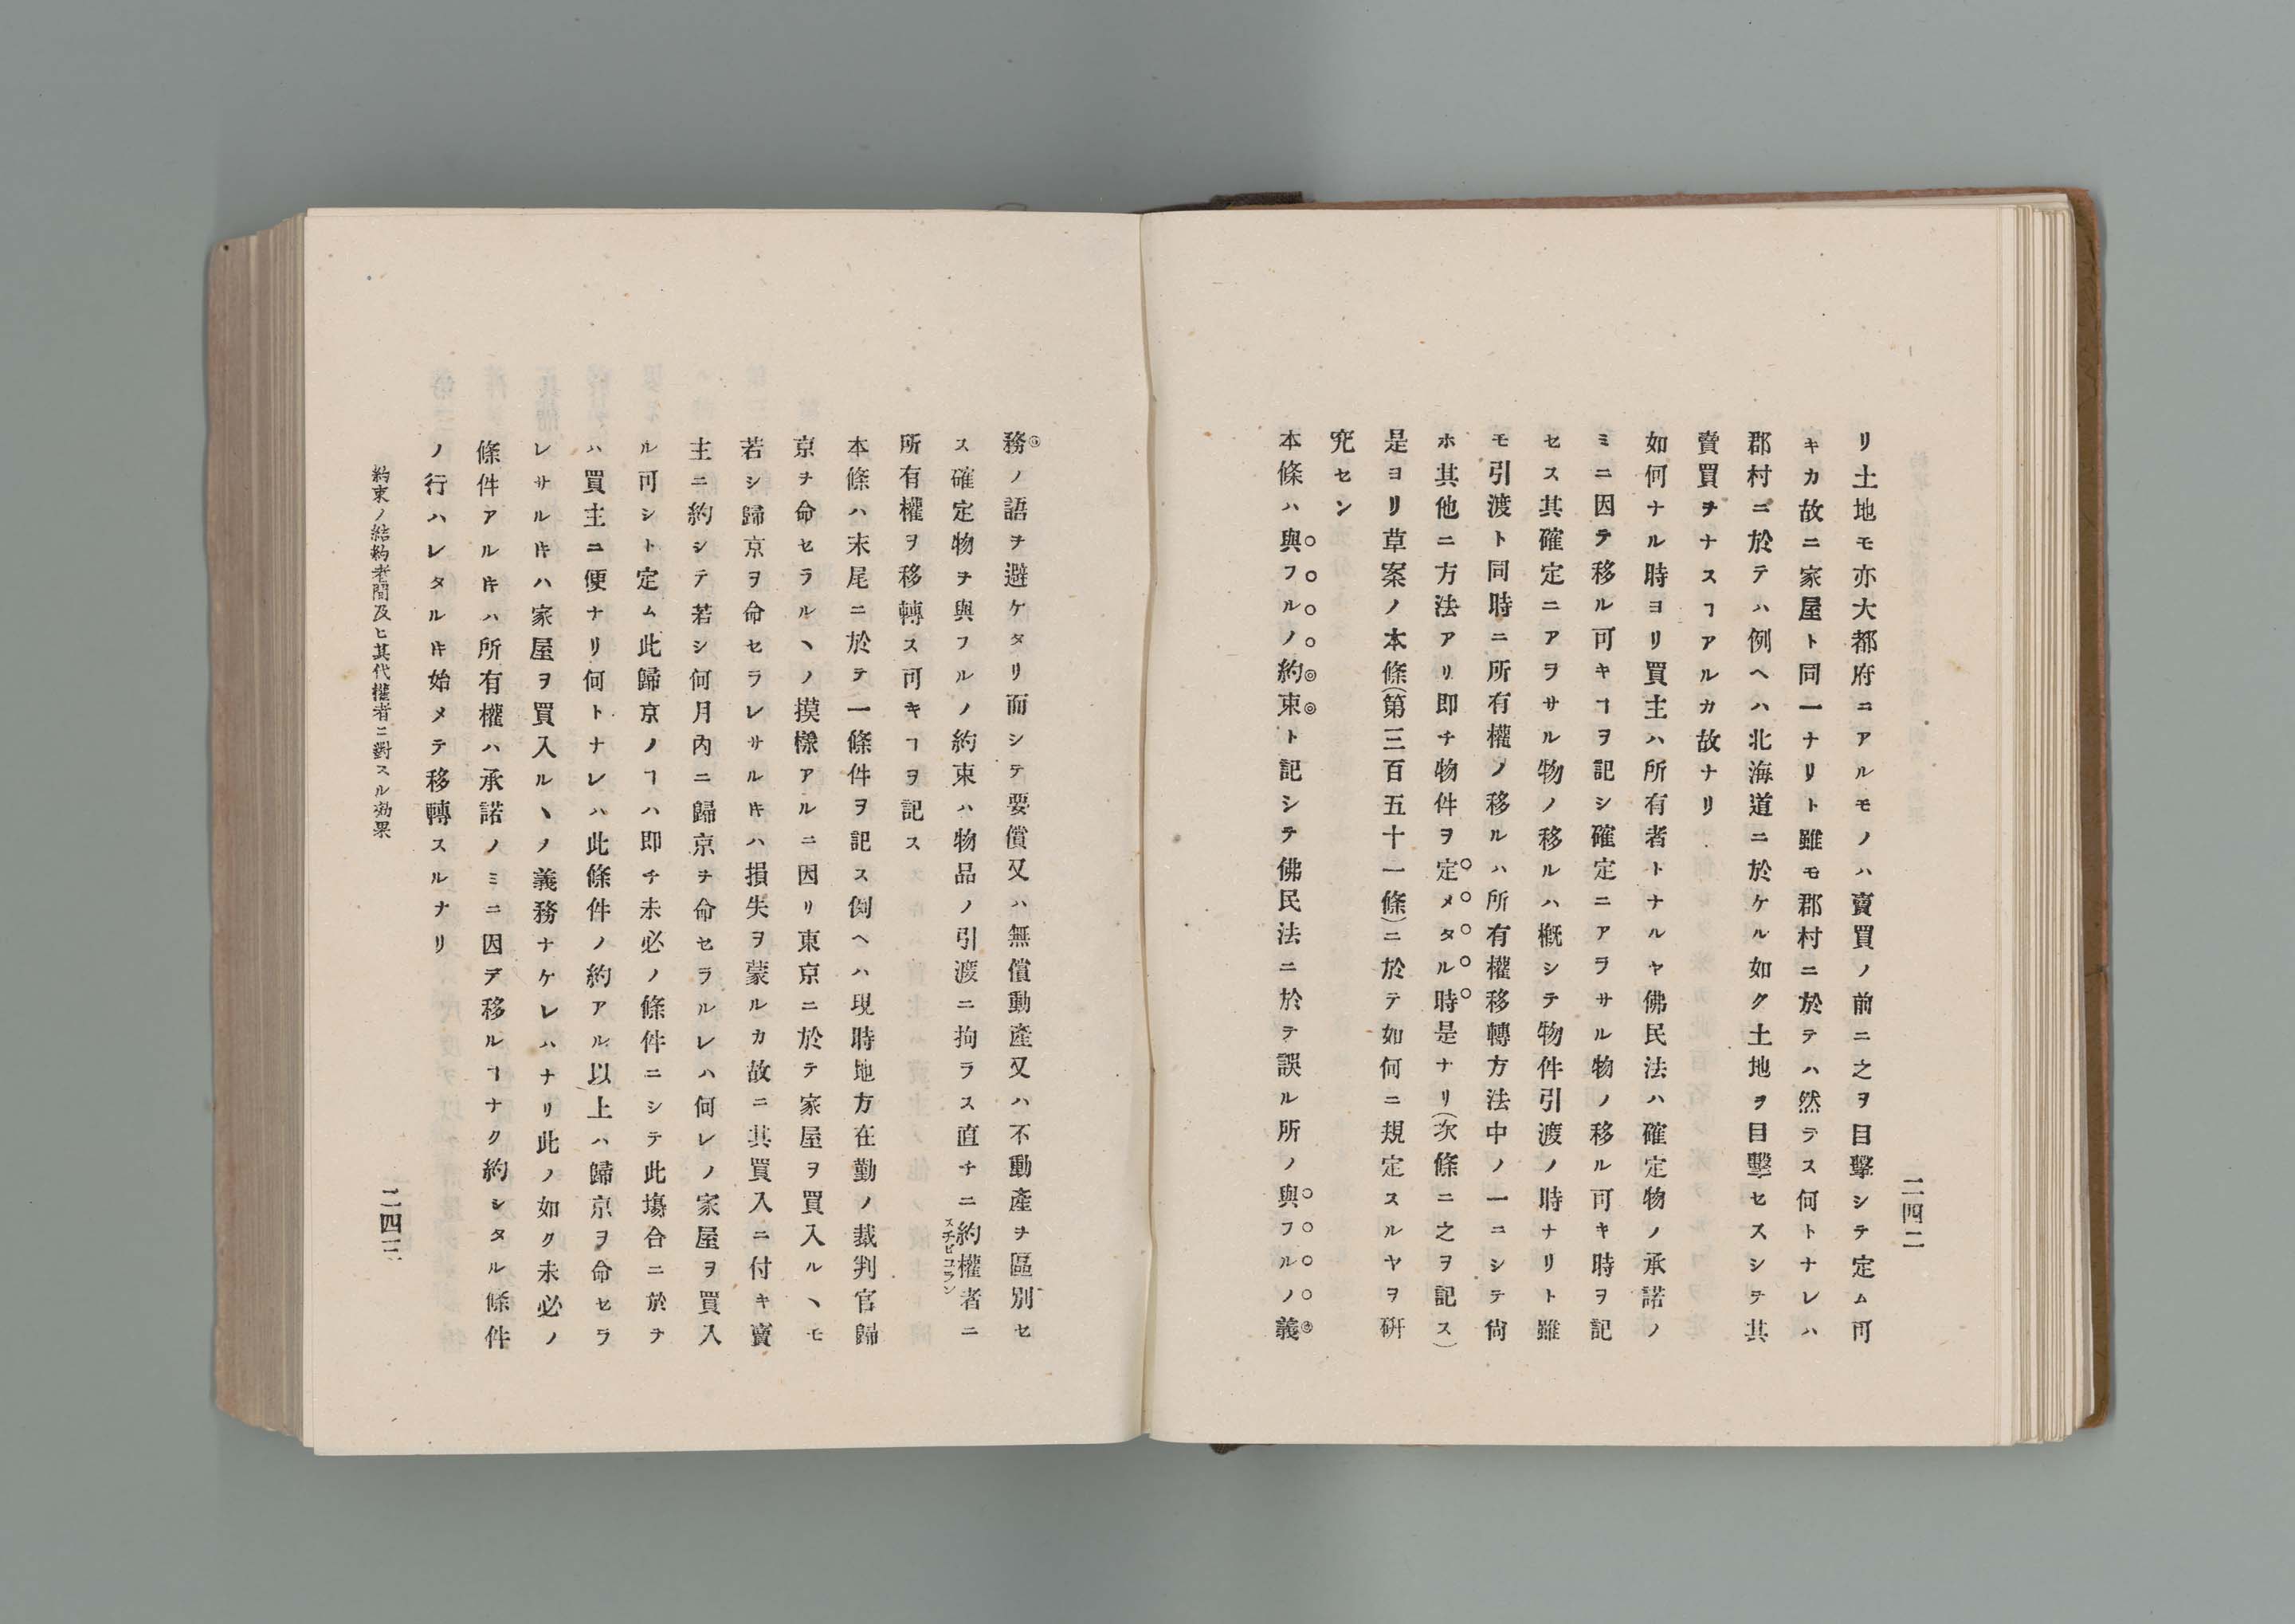 リ土地モ亦大都府ニアルモノハ賣買ノ前ニ之ヲ目擊シテ定ム可
キカ故ニ家屋ト同一ナリト雖モ郡村ニ於テハ然ラス何トナレハ
郡村ニ於テハ例ヘハ北海道ニ於ケル如ク土地ヲ目擊セスシテ其
賣買ヲナスヿアルカ故ナリ
如何ナル時ヨリ買主ハ所有者トナルヤ佛民法ハ確定物ノ承諾ノ
ミニ因テ移ル可キヿヲ記シ確定ニアラサル物ノ移ル可キ時ヲ記
セス其確定ニアヲサル物ノ移ルハ槪シテ物件引渡ノ時ナリト雖
モ引渡ト同時ニ所有權ノ移ルハ所有權移轉方法中ノ一ニシテ尙
ホ其他ニ方法アリ即チ物件ヲ定メタル時是ナリ(次條ニ之ヲ記ス)
是ヨリ草案ノ本條(第三百五十一條)ニ於テ如何ニ規定スルヤヲ硏
究セン
本條ハ與フルノ約束ト記シテ佛民法ニ於テ誤ル所ノ與フルノ義
二四二
務ノ語ヲ避ケタリ而シテ要償又ハ無償動產又ハ不動產ヲ區別セ
ス確定物ヲ與フルノ約束ハ物品ノ引渡ニ拘ラス直チニ約權者ニ
スチピユラン
所有權ヲ移轉ス可キヿヲ記ス
本條ハ末尾ニ於テ一條件ヲ記ス例ヘハ現時地方在勤ノ裁判官歸
京ヲ命セラルヽノ摸樣アルニ因リ東京ニ於テ家屋ヲ買入ルヽモ
若シ歸京ヲ命セラレサルキハ損失ヲ蒙ルカ故ニ其買入ニ付キ賣
主ニ約シテ若シ何月內ニ歸京ヲ命セラルレハ何レノ家屋ヲ買入
ル可シト定ム此歸京ノヿハ即チ未必ノ條件ニシテ此塲合ニ於テ
ハ買主ニ便ナリ何トナレハ此條件ノ約アル以上ハ歸京ヲ命セラ
レサルキハ家屋ヲ買入ルヽノ義務ナケレハナリ此ノ如ク未必ノ
條件アルキハ所有權ハ承諾ノミニ因テ移ルヿナク約シタル條件
ノ行ハレタルキ始メテ移轉スルナリ
約束ノ結約者間及ヒ其代權者ニ對スル効果
二四三